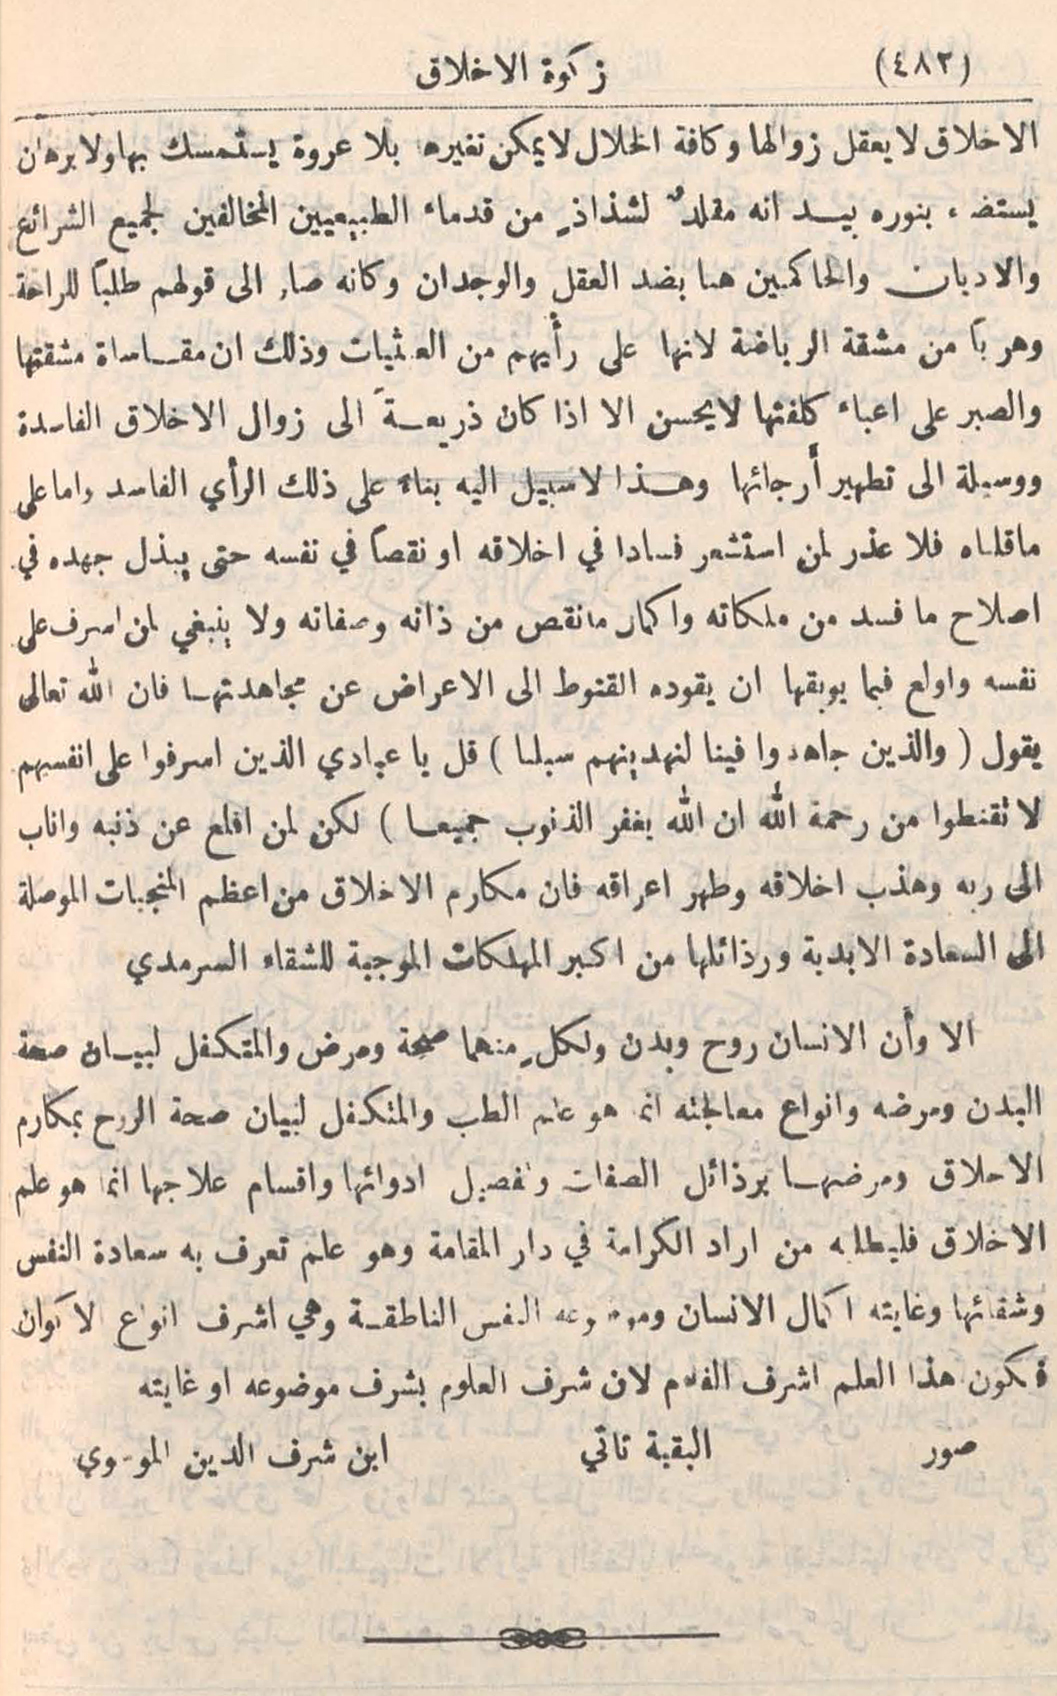 (٤٨٢) زكوة الاخلاق
الاخلاق لا يعقل زوالها وكافة الخلال لا يمكن تغيرها بلا عروة يستمسك بها ولا برهان
يستضيء بنوره بيد انه مقلدٌ لشذاذٍ من قدماء الطبيعيين المخالفين لجميع الشرائع
والاديان والحاكمين هنا بضد العقل والوجدان وكانه صار الى قولهم طلباً للراحة
وهرباً من مشقة الرياضة لانها على رأيهم من العبثيات وذلك ان مقاساة مشقتها
والصبر على اعباء كلفتها لا يحسن الا اذا كان ذريعةً الى زوال الاخلاق الفاسدة
ووسيلة الى تطهير أرجائها وهذا لا سبيل اليه بناء على ذلك الرأي الفاسد واما على
ماقلناه فلا عذر لمن استشعر فسادا في اخلاقه او نقصاً في نفسه حتى يبذل جهده في
اصلاح ما فسد من ملكاته واكمال مانقص من ذاته وصفاته ولا ينبغي لمن اسرف على
نفسه واولع فيما يوبقها ان يقوده القنوط الى الاعراض عن مجاهدتها فان الله تعالى
يقول ( والذين جاهدوا فينا لنهدينهم سبلنا ) قل يا عبادي الذين اسرفوا على انفسهم
لا تقنطوا من رحمة الله ان الله يغفر الذنوب جميعا ) لكن لمن اقلع عن ذنبه واناب
الى ربه وهذب اخلاقه وطهر اعراقه فان مكارم الاخلاق من اعظم المنجيات الموصلة
الى السعادة الابدية ورذائلها من اكبر المهلكات الموجبة للشقاء السرمدي
الا وأن الانسان روح وبدن ولكلٍ منهما صحة ومرض والمتكفل لبيان صحة
البدن ومرضه وانواع معالجته انما هو علم الطب والمتكفل لبيان صحة الروح بمكارم
الاخلاق ومرضها برذائل الصفات وتفصيل ادوائها واقسام علاجها انما هو علم
الاخلاق فليطلبه من اراد الكرامة في دار المقامة وهو علم تعرف به سعادة النفس
وشقائها وغايته اكمال الانسان وموضوعه النفس الناطقة وهي اشرف انواع الاكوان
فيكون هذا العلم اشرف العلوم لان شرف العلوم بشرف موضوعه او غايته
صور البقية تاتي ابن شرف الدين الموسوي